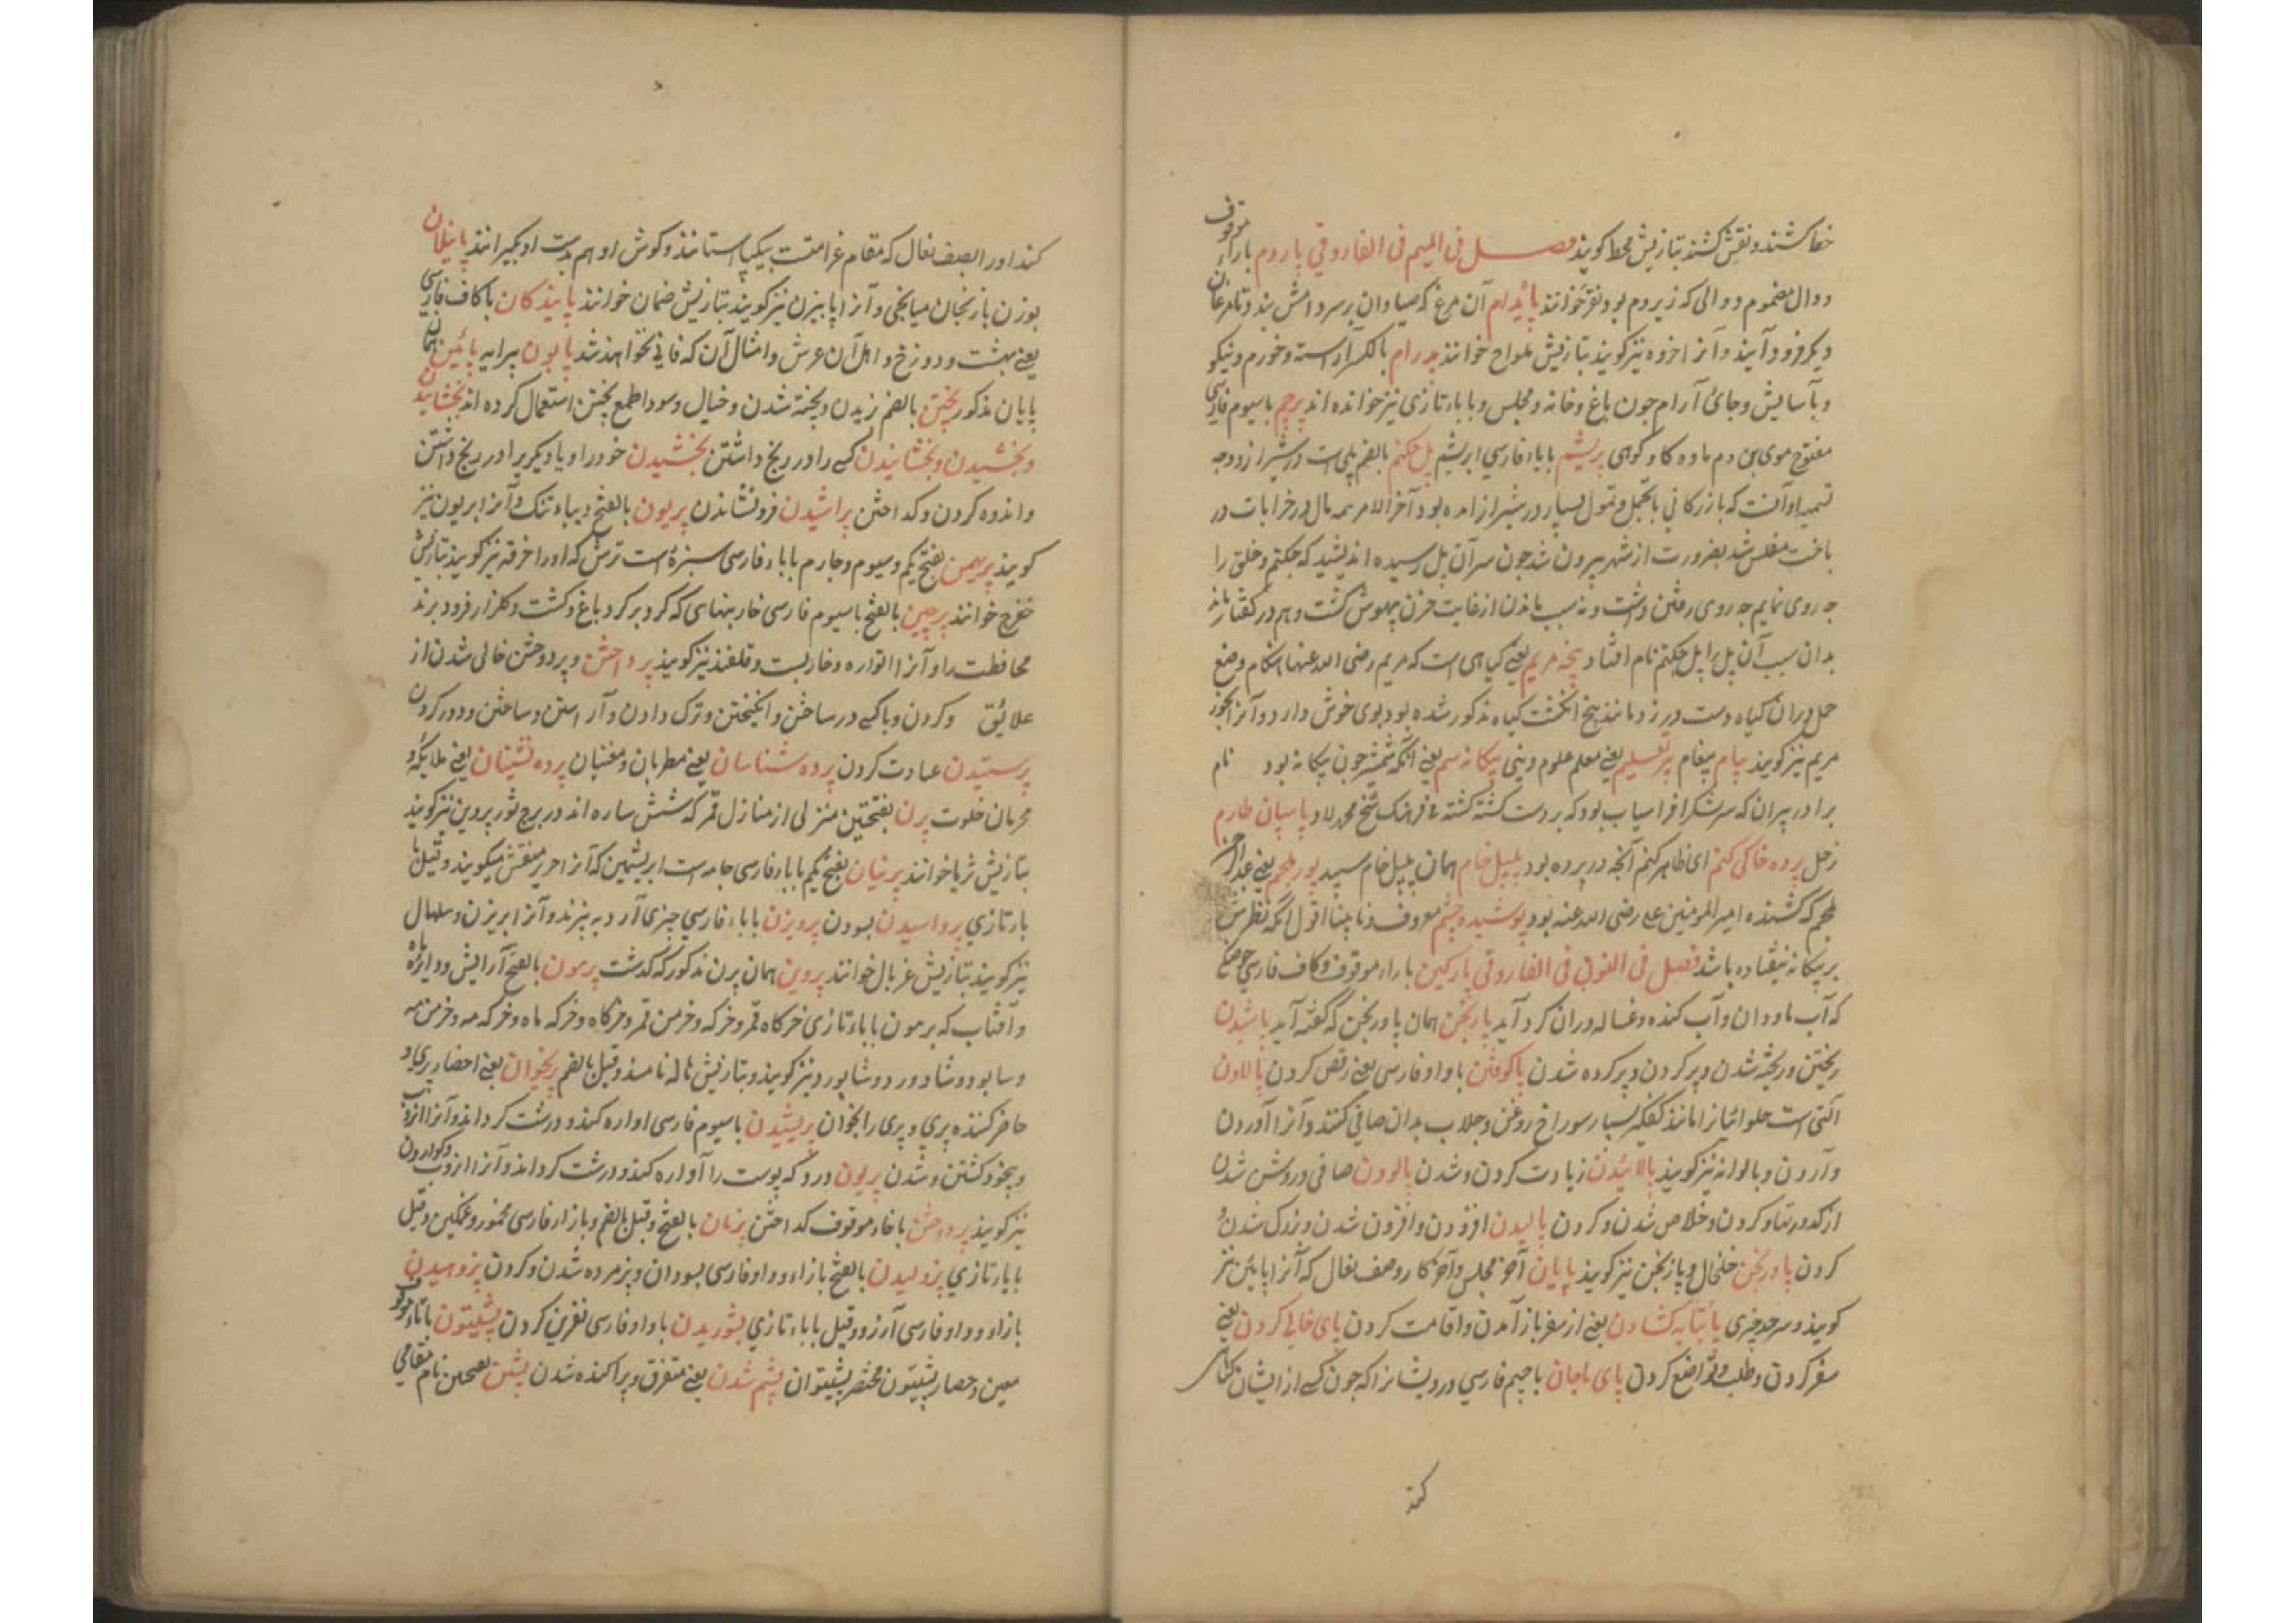 خط کشند و نقش کشند بتازیش محط کویند فصل فی المیم فی الفاروقی پاردم با راء موقوف
و دال مضموم دوالی که زیر دم بود نفر خوانند پایدام آن مرغ که صیادان بر سر دامش بندند تا مرغان
دیکر فرود آیند و آنرا خروه نیز کویند بتازیش ملواح خوانند پدرام بالکسر آراسته و خورم و نیکو
و بآسایش و جائ آرام چون باغ و خانه و مجلس و با باء تازی نیز خوانده اند پرچم با سیوم فارسی
مفتوح موی بن دم ماده کاو کوهی بریشم با باء فارسی ابریشم پل چکنم بالضم پلی است در شیراز و وجه
تسمیه او آنست که بازرکانی با تجمل و تمول بسیار در شیراز آمده بود آخر الامر همه مال در خرابات در
باخت مفلس شد بضرورت از شهر بیرون شد چون سر آن پل رسیده اندیشید که چکنم و خلق را
چه روی نمایم نه روی رفتن داشت و نه سبب ماندن از غایت حزن بیهوش کشت و هم در کفتار ماند
بدان سبب آن پل را پل چکنم نام افتاد پنجه مریم یعنی کیاهی است که مریم رضی الله عنها هنکام وضع
حمل بران کیاه دست در زد مانند پنج انکشت کیاه مذکور شده بود بوی خوش دارد و آنرا بخور
مریم نیز کویند پیام پیغام پیر تعلیم یعنی معلم علوم دینی پیکانه سم یعنی آنکه سمش چون پیکانه بود نام
برادر پیران که سر لشکر افراسیاب بود که بر دست کشته کشته فرهنک شیخ محمد لاد پاسبان طارم
زحل پرده خاکی کنم ای ظاهر کنم آنچه در پرده بود پیل خام همان پیل خام سپید پور ملجم یعنی عبد الرحمن
ملجم که کشنده امیر المومنین علی رضی الله عنه بود پوشیده چشم معروف و نابینا اقول آنکه نظرش
بر پیکانه نیفتاده باشد فصل فی النون فی الفاروقی پارکین با راء موقوف و کاف فارسی حوضکی
که آب ناودان و آب کنده و غساله دران کرد آید پارنجن همان پاورنجن که کفته آید پاشیدن
ریختن و ریخته شدن و پر کردن و پر کرده شدن پاکوفتن با واو فارسی یعنی رقص کردن پالاون
آلتی است حلوائیانرا مانند کفکیر بسیار سوراخ روغن و جلاب بدان صافی کنند و آنرا آوردن
و آردن و پالوانه نیز کویند پالائیدن زیادت کردن و شدن پالودن صافی و روشن شدن
از کدورتها و کردن و خلاص شدن و کردن پالیدن افزودن و افزون شدن و بزرک شدن و
کردن پاورنجن خلخال و پارنجن نیز کویند پایان آخر مجلس و آخر کار و صف نعال که آنرا پائین نیز
کویند و سر حد چیزی پایتابه کشادن یعنی از سفر باز آمدن و اقامت کردن پای خاکی کردن یعنی
سفر کردن و طلب و تواضع کردن پای ماجان با جیم فارسی درویشانرا که چون کسی از ایشان کناهی
کند
کند او را بصف نعال که مقام غرامتست بیکپا استانند و کوش او هم بدست او بکیرانند پایندان
بوزن بازنجان میانجی و آنرا پابیزن نیز کویند بتازیش ضمان خوانند پایندکان با کاف فارسی
یعنی بهشت و دوزخ و اهل آن عرش و امثال آن که فانی نخواهند شد پایون پیرایه پائین همان
پایان مذکور پختن بالضم پزیدن و پخته شدن و خیال و سودا طمع پختن استعمال کرده اند پخشانیدن
و پخشیدن و پخشایندن کسی را در رنج داشتن پخشیدن خود را و یا دیکریرا در رنج داشتن
و اندوه کردن و کداختن پراشیدن فرونشاندن پریون بالفتح دیباء تنک و آنرا ابریون نیز
کویند پرپهن بفتح یکم و سیوم و چارم با باء فارسی سبزهٔ است ترش که او را خرفه نیز کویند بتازیش
خفرج خوانند پرچین بالفتح با سیوم فارسی خار بنهایی که کرد بر کرد باغ و کشت و کلزار فرو برند
محافظت را و آنرا اتواره و خاربست و قلغند نیز کویند پرداختن و پردوختن خالی شدن از
علائق و کردن و با کسی در ساختن و انکیختن و ترک دادن و آراستن و ساختن و دور کردن
پرستیدن عبادت کردن پرده شناسان یعنی مطربان و مغنیان پرده نشینان یعنی ملایکه و
محرمان خلوت پرن بفتحتین منزلی از منازل قمر که شش ستاره اند در برج ثور پروین نیز کویند
بتازیش ثریا خوانند پرنیان بفتح یکم با باء فارسی جامه است ابریشمین که آنرا حریر منقش میکویند و قیل با
باء تازی پرواسیدن بسودن پرویزن با باء فارسی چیزی آرد به بیزند و آنرا پریزن و سلهال
نیز کویند بتازیش غربال خوانند پروین همان پرن مذکور که کذشت پرهون بالفتح آرایش و دایرهٔ ماه
و آفتاب که برهون با باء تازی خرکاه قمر و خرکه و خرمن قمر و خرکاه و خرکه ماه و خرکه مه و خرمن مه
و سابود و شادورد و شاپورد نیز کویند و بتازیش هاله نامند و قیل بالضم پریخوان یعنی احضار پری و
حاضر کننده پری و پری را بخوان پریشیدن با سیوم فارسی اواره کنند و درشت کردانند و آنرا انزوب
و بیخود کشتن و شدن پریون درد که پوست را آواره کند و درشت کرداند و آنرا انزوب و کوارون
نیز کویند پرداختن با خاء موقوف کداختن پژمان بالفتح و قیل بالضم و با زاء فارسی مخمور و غمکین و قیل
با باء تازی پژولیدن بالفتح با زاء و واو فارسی بسودان و پژمرده شدن و کردن پژوهیدن
با زاء و واو فارسی آرزو و قیل با باء تازی پشوریدن با واو فارسی نفرین کردن پشیتون با تاء موقوف
معین و حصار پشیتون مختصر پشیتوان پشم شدن یعنی متفرق و پراکنده شدن پشن بفتحتین نام مقامی